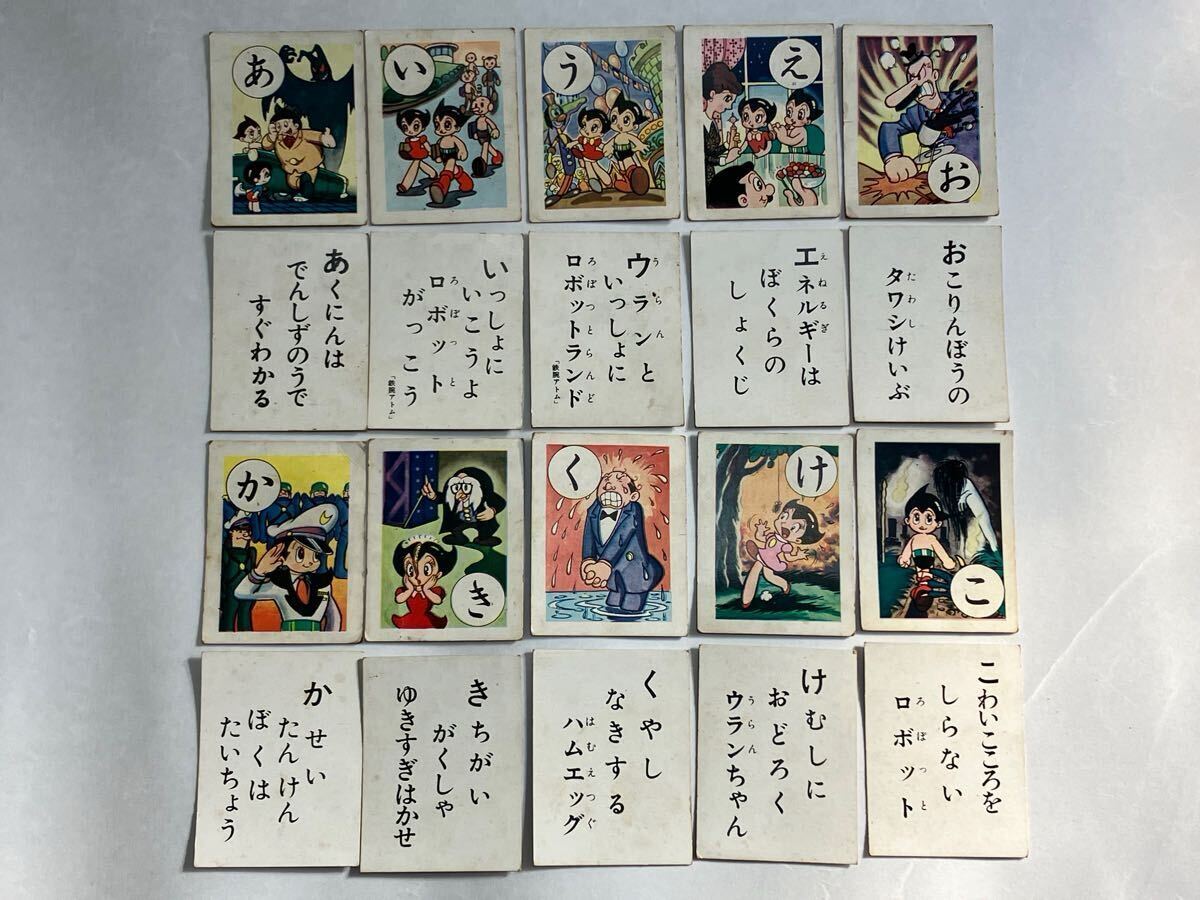 あ
い
う
え
お
あくにんは
でんしずのうで
すぐわかる
いっしょに
いこうよ
ロボット
ろぼっと
がっこう
「鉄腕アトム」
ウランと
うらん
いっしょに
ロボットランド
ろぼっとらんど
「鉄腕アトム」
エネルギーは
えねるぎ
ぼくらの
しょくじ
おこりんぼうの
タワシけいぶ
たわし
か
き
く
け
こ
かせい
たんけん
ぼくは
たいちょう
きちがい
がくしゃ
ゆきすぎはかせ
くやし
なきする
ハムエッグ
はむえっぐ
けむしに
おどろく
ウランちゃん
うらん
こわいこころを
しらない
ロボット
ろぼっと